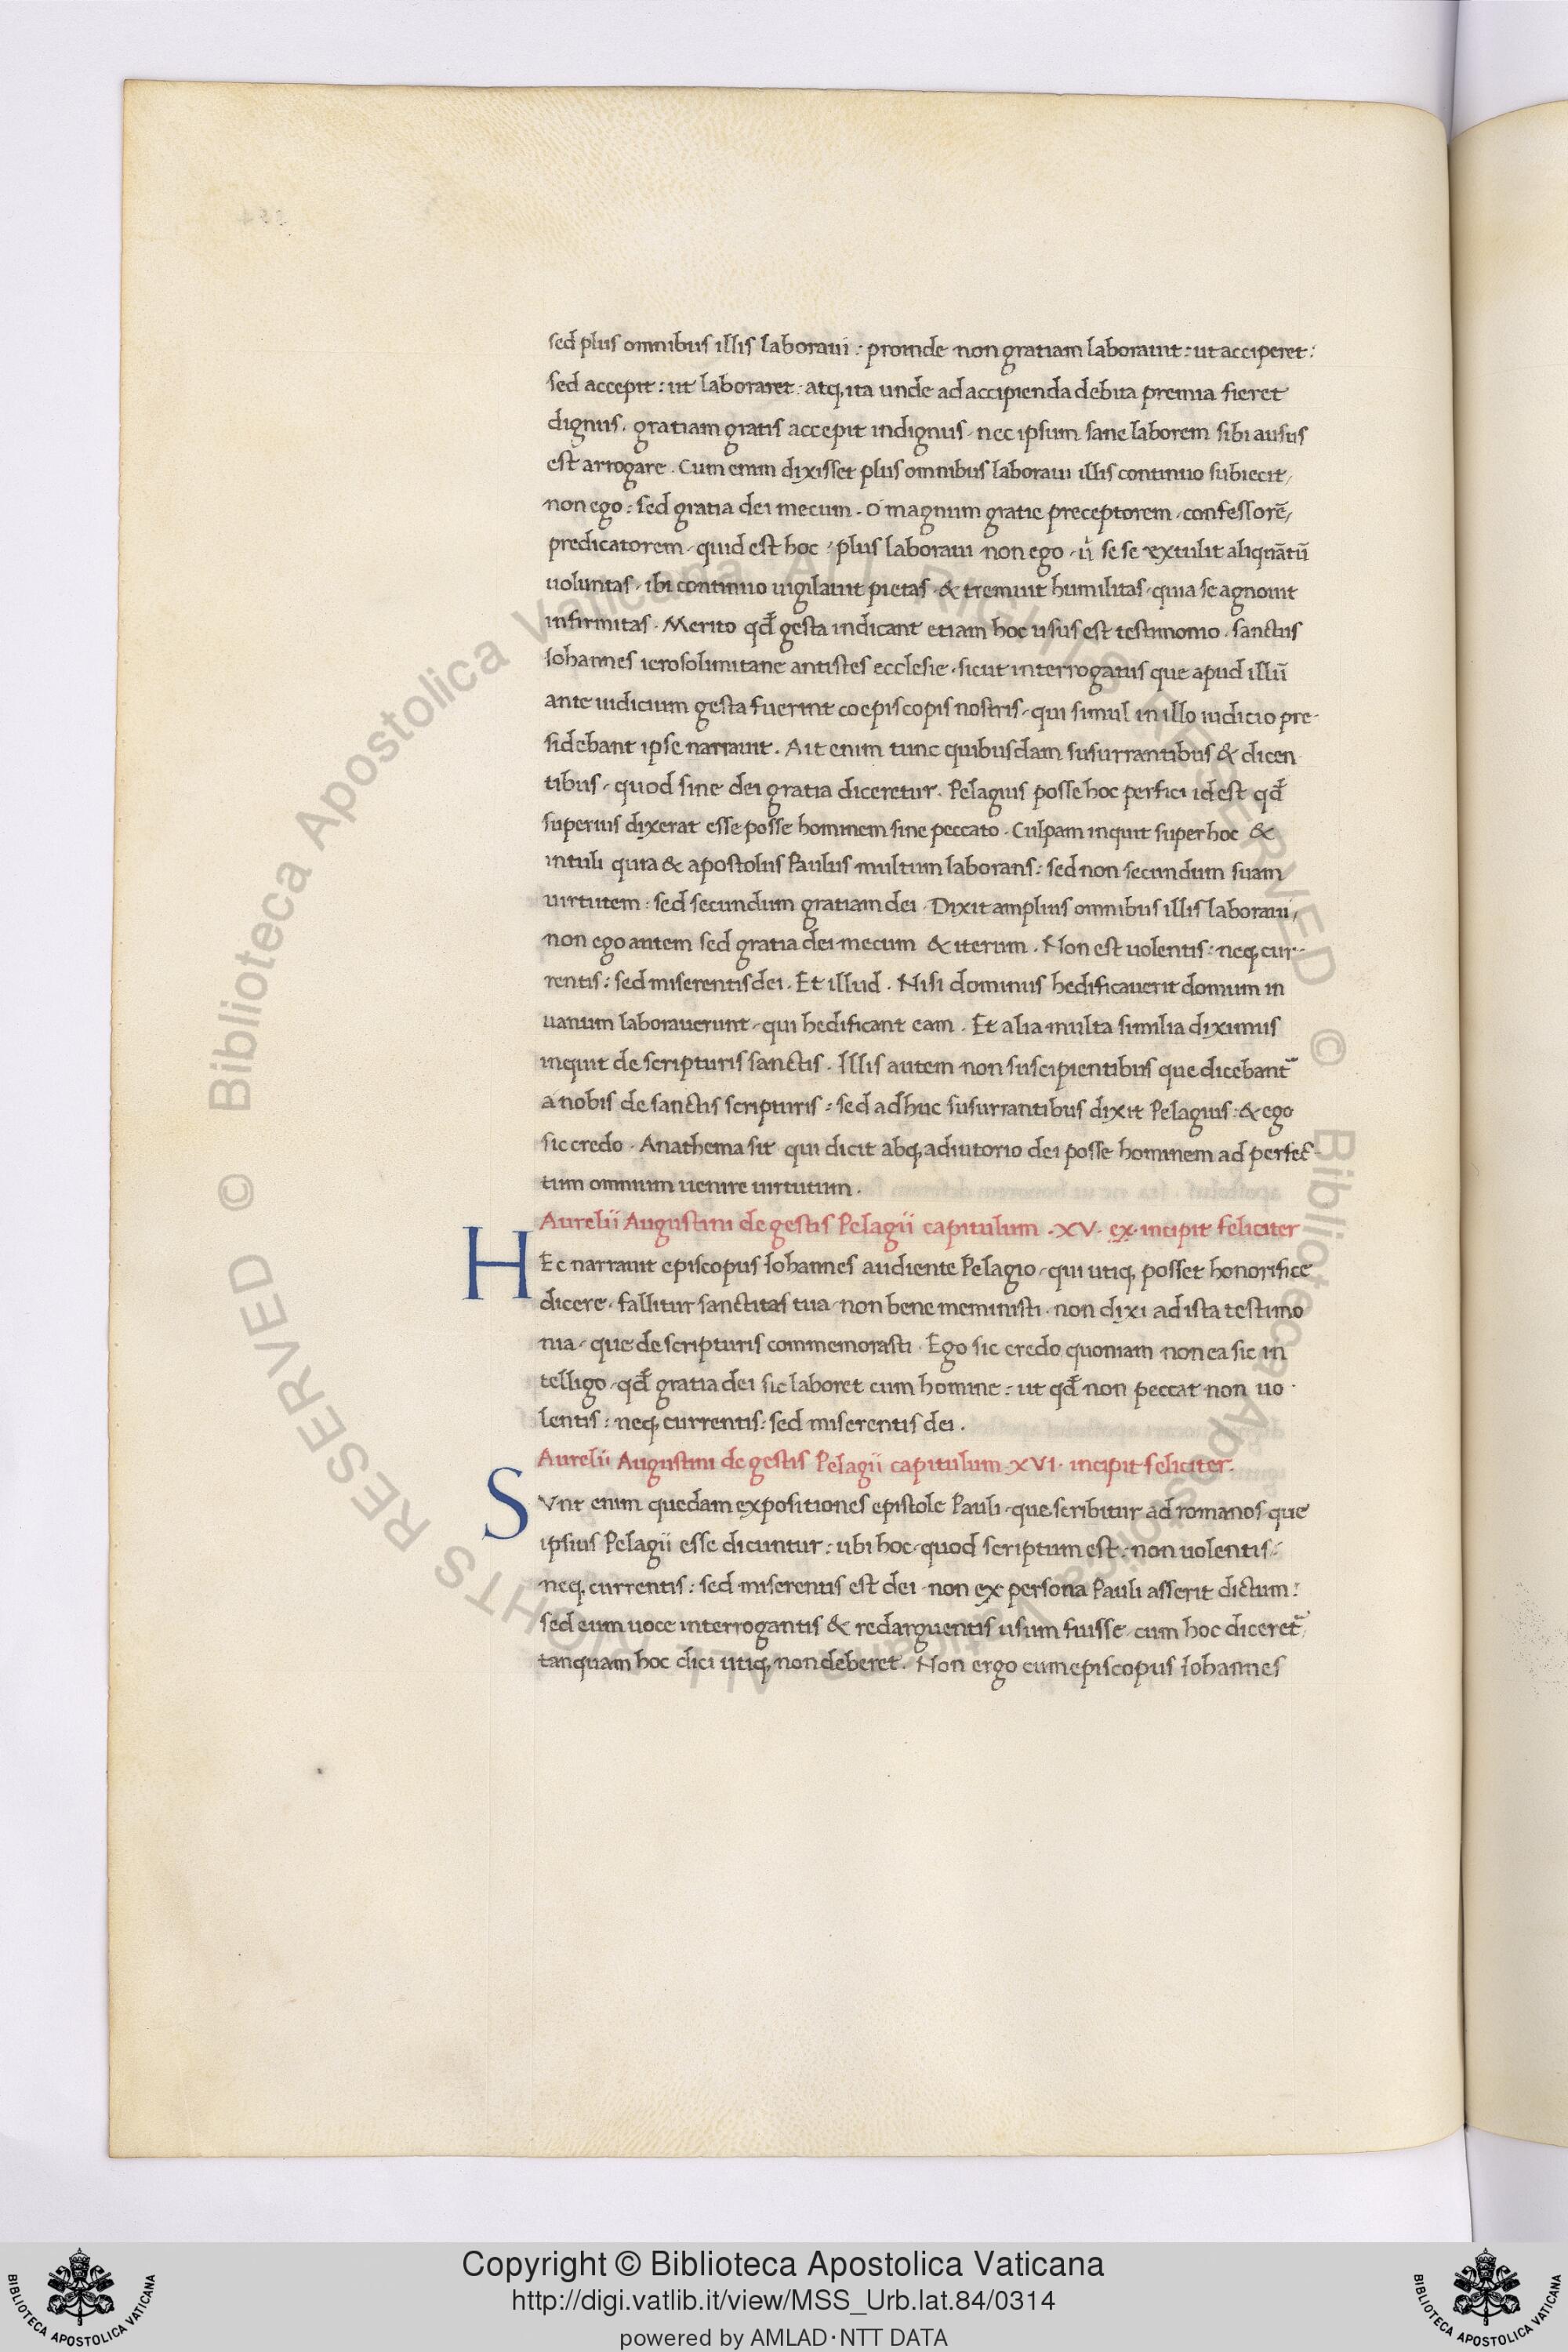 sed plus omnibus illis laboraui : proinde non gratiam laborauit : ut acciperet :
sed accepit : ut laboraret . atq, ita unde ad accipienda debita premia fieret
dignus . gratiam gratis accepit indignus . nec ipsum sane laborem sibi ausus
est arrogare . Cum enim dixisset plus omnibus laboraui illis continuo subiecit /
non ego : sed gratia dei mecum . O magnum gratie preceptorem . confessorē /
predicatorem . quid est hoc : plus laboraui non ego . u̇ sese extulit aliquātū
uoluntas . ibi continuo uigilauit pietas . & tremuit humilitas . quia se agnouit
infirmitas . Merito qđ gesta indicant etiam hoc usus est testimonio . sanctus
Iohannes ierosolimitane antistes ecclesie . sicut interrogatus que apud illū
ante iudicium gesta fuerint coepiscopis nostris . qui simul in illo iudicio pre-
sidebant ipse narrauit . Ait enim tunc quibusdam susurrantibus & dicen
tibus . quod sine dei gratia diceretur . Pelagius posse hoc perfici id est qđ
superius dixerat esse posse hominem sine peccato . Culpam inquit super hoc &
intuli quia & apostolus Paulus multum laborans : sed non secundum suam
uirtutem : sed secundum gratiam dei . Dixit amplius omnibus illis laboraui /
non ego autem sed gratia dei mecum & iterum . Non est uolentis : neq, cur-
rentis : sed miserentis dei . Et illud . Nisi dominus hedificauerit domum in
uanum laborauerunt . qui hedificant eam . Et alia multa similia diximus
inquit de scripturis sanctis . Illis autem non suscipientibus que dicebant᷑
a nobis de sanctis scripturis : sed adhuc susurrantibus dixit Pelagius : & ego
sic credo . Anathema sit qui dicit absq, adiutorio dei posse hominem ad perfec-
tum omnium uenire uirtutum .
Aurelii Augustini de gestis Pelagii capitulum . XV . ex . incipit feliciter
HEc narrauit episcopus Iohannes audiente Pelagio . qui utiq, posset honorifice
dicere . fallitur sanctitas tua . non bene meministi . non dixi ad ista testimo
nia . que de scripturis commemorasti . Ego sic credo quoniam non ea sic in
telligo . qđ gratia dei sic laboret cum homine : ut qđ non peccat non uo
lentis : neq, currentis : sed miserentis dei .
Aurelii Augustini de gestis Pelagii capitulum . XVI . incipit feliciter .
SVnt enim quedam expositiones epistole Pauli . que scribitur ad romanos . que
ipsius Pelagii esse dicuntur : ubi hoc . quod scriptum est : non uolentis :
neq, currentis : sed miserentis est dei non ex persona Pauli asserit dictum :
sed eum uoce interrogantis & redarguentis usum fuisse . cum hoc diceret᷑
tanquam hoc dici utiq, non deberet . Non ergo cum episcopus Iohannes
© Biblioteca Apostolica Vaticana ALL RIGHTS RESERVED
© Biblioteca Apostolica Vaticana ALL RIGHTS RESERVED
Copyright © Biblioteca Apostolica Vaticana
http://digi.vatlib.it/view/MSS_Urb.lat.84/0314
powered by AMLAD·NTT DATA
BIBLIOTECA APOSTOLICA VATICANA
BIBLIOTECA APOSTOLICA VATICANA